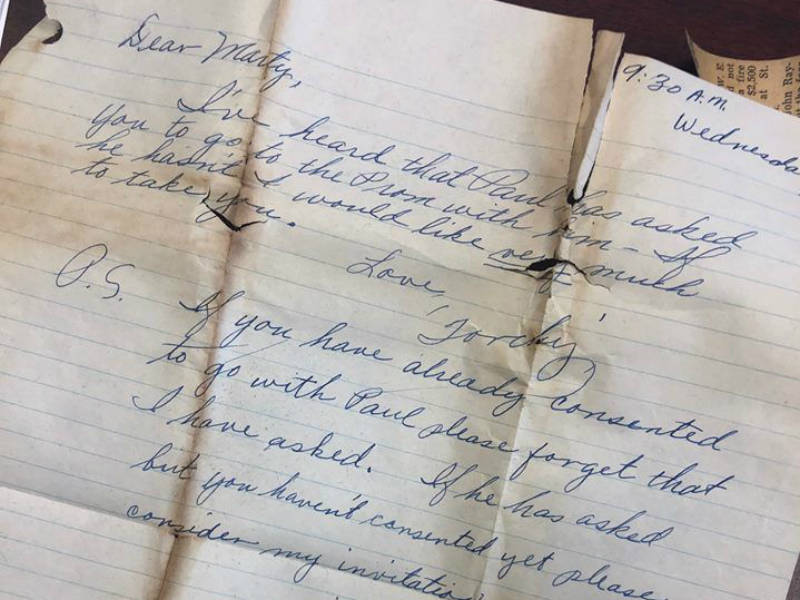 9:30 A.M.
Wednesda
Dear Marty,
I've heard that Paul has asked
you to go to the Prom with him - If
he hasn't I would like very much
to take you.
Love,
'Torchy'
P.S. If you have already consented
to go with Paul please forget that
I have asked. If he has asked
but you haven't consented yet please
consider my invitation
W. E.
not
a fire
$2,500
at St.
John Ray-